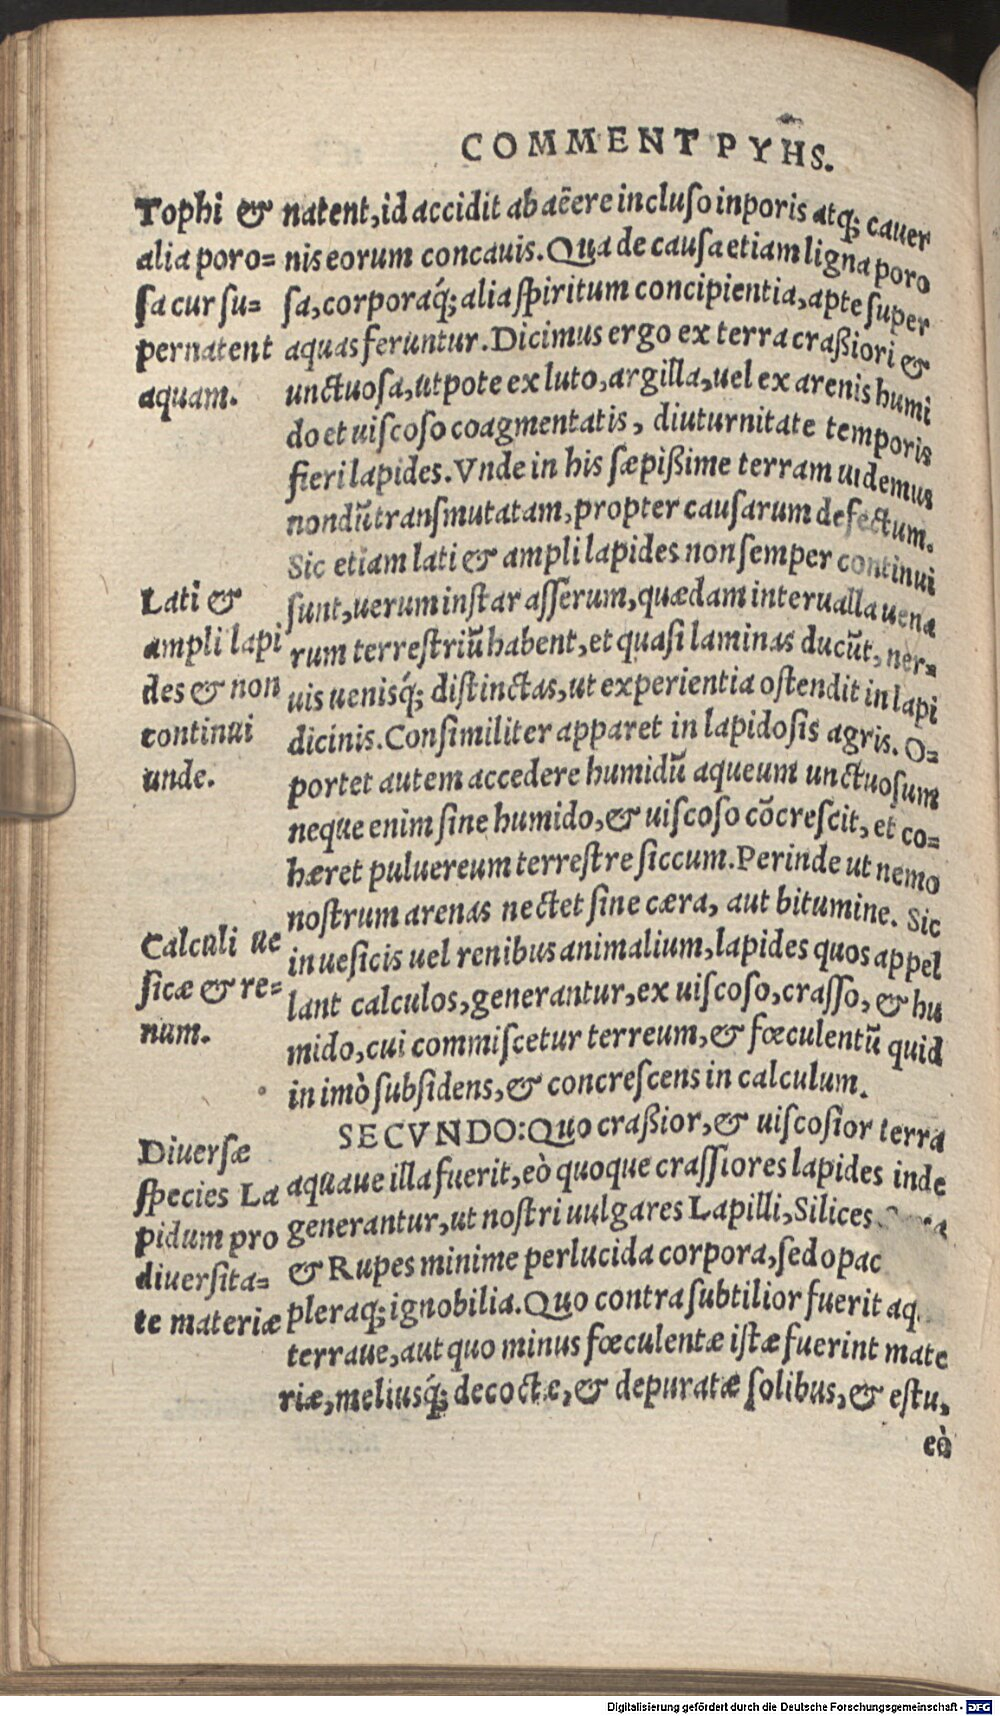 COMMENT PYHS.
Tophi &
alia poro=
sa cur su=
pernatent
aquam.
natent, id accidit ab aëre incluso in poris atq; cauer
nis eorum concauis. Qua de causa etiam ligna poro
sa, corporaq́; alia spiritum concipientia, apte super
aquas feruntur. Dicimus ergo ex terra craßiori &
unctuosa, utpote ex luto, argilla, uel ex arenis humi
do et uiscoso coagmentatis, diuturnitate temporis
fieri lapides. Vnde in his sæpißime terram uidemus
nondũ transmutatam, propter causarum defectum.
Sic etiam lati & ampli lapides non semper continui
Lati &
ampli lapi
des & non
continui
unde.
sunt, uerum instar asserum, quædam interualla uena
rum terrestriũ habent, et quasi laminas ducũt, ner=
uis uenisq́; distinctas, ut experientia ostendit in lapi
dicinis. Consimiliter apparet in lapidosis agris. O=
portet autem accedere humidũ aqueum unctuosum
neque enim sine humido, & uiscoso cõcrescit, et co=
hæret puluereum terrestre siccum. Perinde ut nemo
nostrum arenas nectet sine cæra, aut bitumine. Sic
Calculi ue
sicæ & re=
num.
in uesicis uel renibus animalium, lapides quos appel
lant calculos, generantur, ex uiscoso, crasso, & hu
mido, cui commiscetur terreum, & fœculentũ quid
in imò subsidens, & concrescens in calculum.
SECVNDO: Quo craßior, & uiscosior terra
Diuersæ
species La
pidum pro
diuersita=
te materiæ
aquaue illa fuerit, eò quoque crassiores lapides inde
generantur, ut nostri uulgares Lapilli, Silices
& Rupes minime perlucida corpora, sed opac
pleraq; ignobilia. Quo contra subtilior fuerit aq
terraue, aut quo minus fœculentæ istæ fuerint mate
riæ, meliusq́; decoctæ, & depuratæ solibus, & estu,
eò
Digitalisierung gefördert durch die Deutsche Forschungsgemeinschaft - DFG